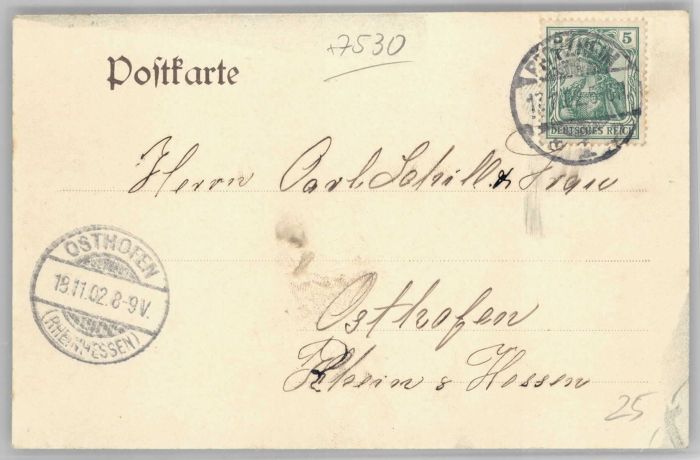 7530
Postkarte
5
DEUTSCHES REICH
Herrn Carl Schill & Frau
OSTHOFEN
18.11.02.8-9V.
(RHEINHESSEN)
Osthofen
Rhein & Hessen
25